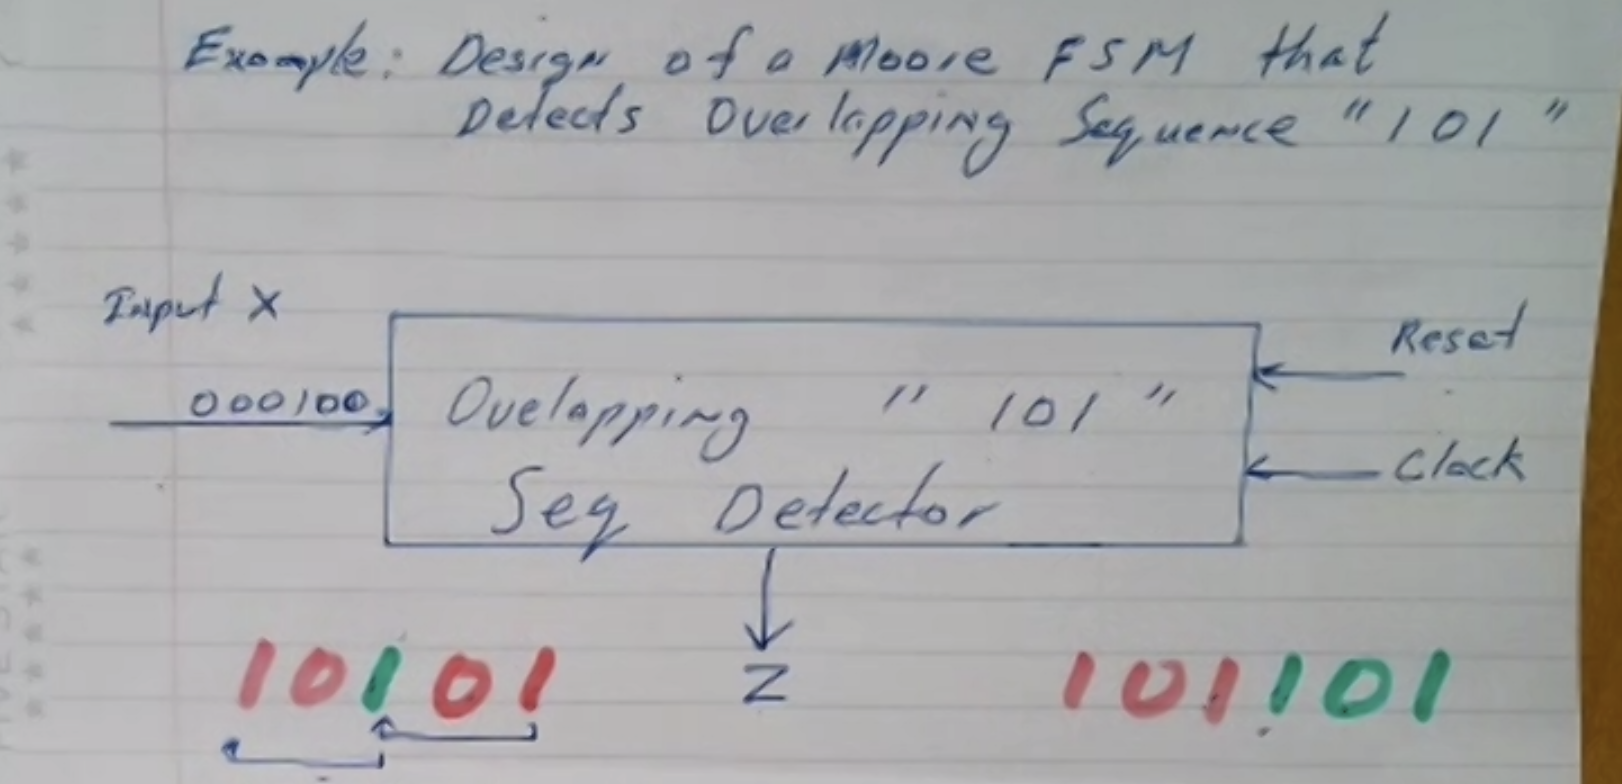 Example: Design of a Moore FSM that
Detects Overlapping Sequence "101"
Input X
Reset
000100
Ovelapping "101"
Clock
Seq Detector
10101
Z
101101